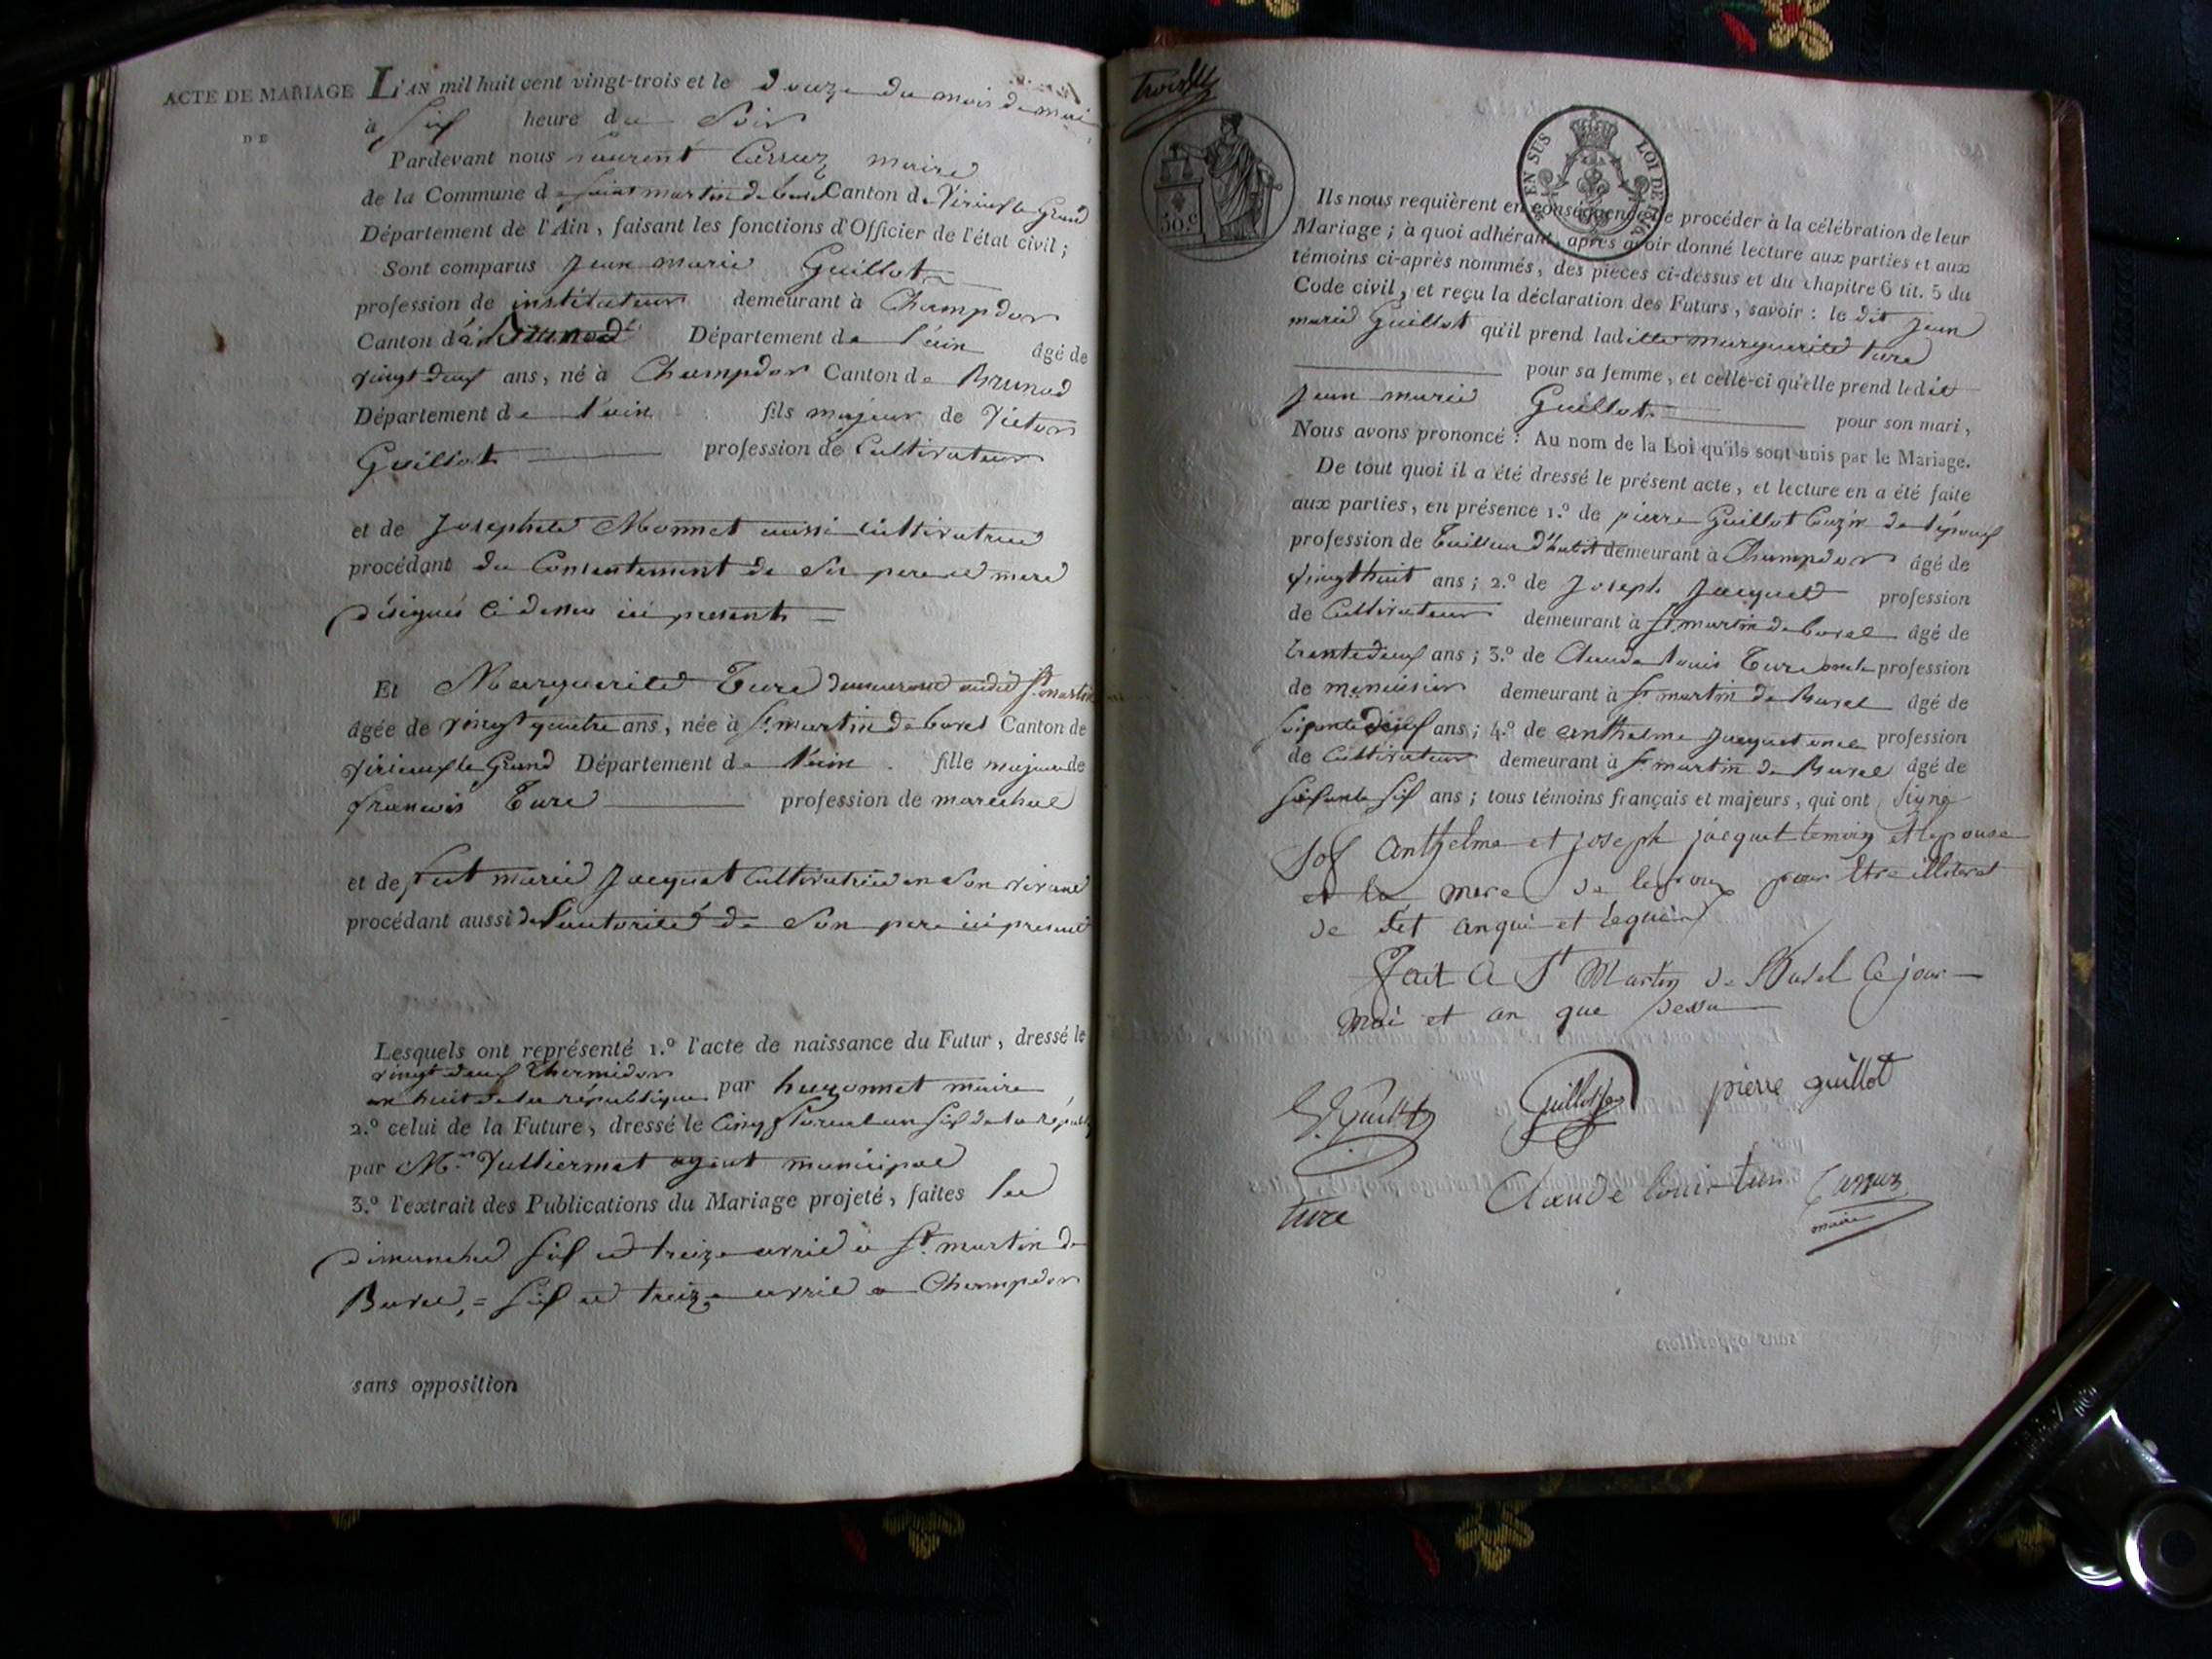 ACTE DE MARIAGE
DE
L'AN mil huit cent vingt-trois et le douze du mois de mai
à six heure du Soir
Pardevant nous Laurent Carraz maire
de la Commune de Saint martin de bavel Canton de Virieux le Grand
Département de l'Ain, faisant les fonctions d'Officier de l'état civil;
Sont comparus Jean marie Guillot
profession de instituteur demeurant à Champdor
Canton d Brenod Département de l'ain âgé de
vingt deux ans, né à Champdor Canton de Brenod
Département de l'ain fils majeur de Victor
Guillot profession de Cultivateur
et de Josephete Monnet aussi Cultivatrice
procédant du Consentement de Ses pere et mere
désigués ci dessus ici presents
Et Marguerite Ture demeurant audit St martin
âgée de vingt quatre ans, née à St martin de bavel Canton de
Virieux le Grand Département de l'ain fille majeure de
francois Ture profession de marechal
et de fut marie Jacquet Cultivatrice en Son vivant
procédant aussi de l'autorité de Son pere ici present
Lesquels ont représenté 1.º l'acte de naissance du Futur, dressé le
vingt deux thermidor
an huit de la république par hugonnet maire
2.º celui de la Future, dressé le Cinq floreal an Six de la républ
par Mr Vulliermet agent municipal
3.º l'extrait des Publications du Mariage projeté, faites les
dimanches Six et treize avril à St martin de
Bavel, = Six et treize avril a Champdor
sans opposition
50.c
EN SUS LOI DE
Ils nous requièrent en conséquence de procéder à la célébration de leur
Mariage; à quoi adhérant, après avoir donné lecture aux parties et aux
témoins ci-après nommés, des pièces ci-dessus et du chapitre 6 tit. 5 du
Code civil, et reçu la déclaration des Futurs, savoir: le dit Jean
marie Guillot qu'il prend ladite marguerite ture
pour sa femme, et celle-ci qu'elle prend ledit
Jean marie Guillot pour son mari,
Nous avons prononcé: Au nom de la Loi qu'ils sont unis par le Mariage.
De tout quoi il a été dressé le présent acte, et lecture en a été faite
aux parties, en présence 1.º de pierre Guillot Cuzin de l'epoux
profession de Tailleur d'habit demeurant à Champdor âgé de
vingt huit ans; 2.º de Joseph Jacquet profession
de Cultivateur demeurant à St martin de bavel âgé de
trente deux ans; 3.º de Claude Louis Ture oncle profession
de menuisier demeurant à St martin de Bavel âgé de
Soixante deux ans; 4.º de anthelme Jacquet oncle profession
de Cultivateur demeurant à St martin de Bavel âgé de
Soixante Six ans; tous témoins français et majeurs, qui ont Signé
sof anthelme et joseph jacquet temoin et lepouse
et la mere de lepoux pour etre illiteret
de set
Fait A St Martin de Bavel le jour
moi et an que dessu
Guillot pierre guillot
ture Claude louis ture Carraz
maire